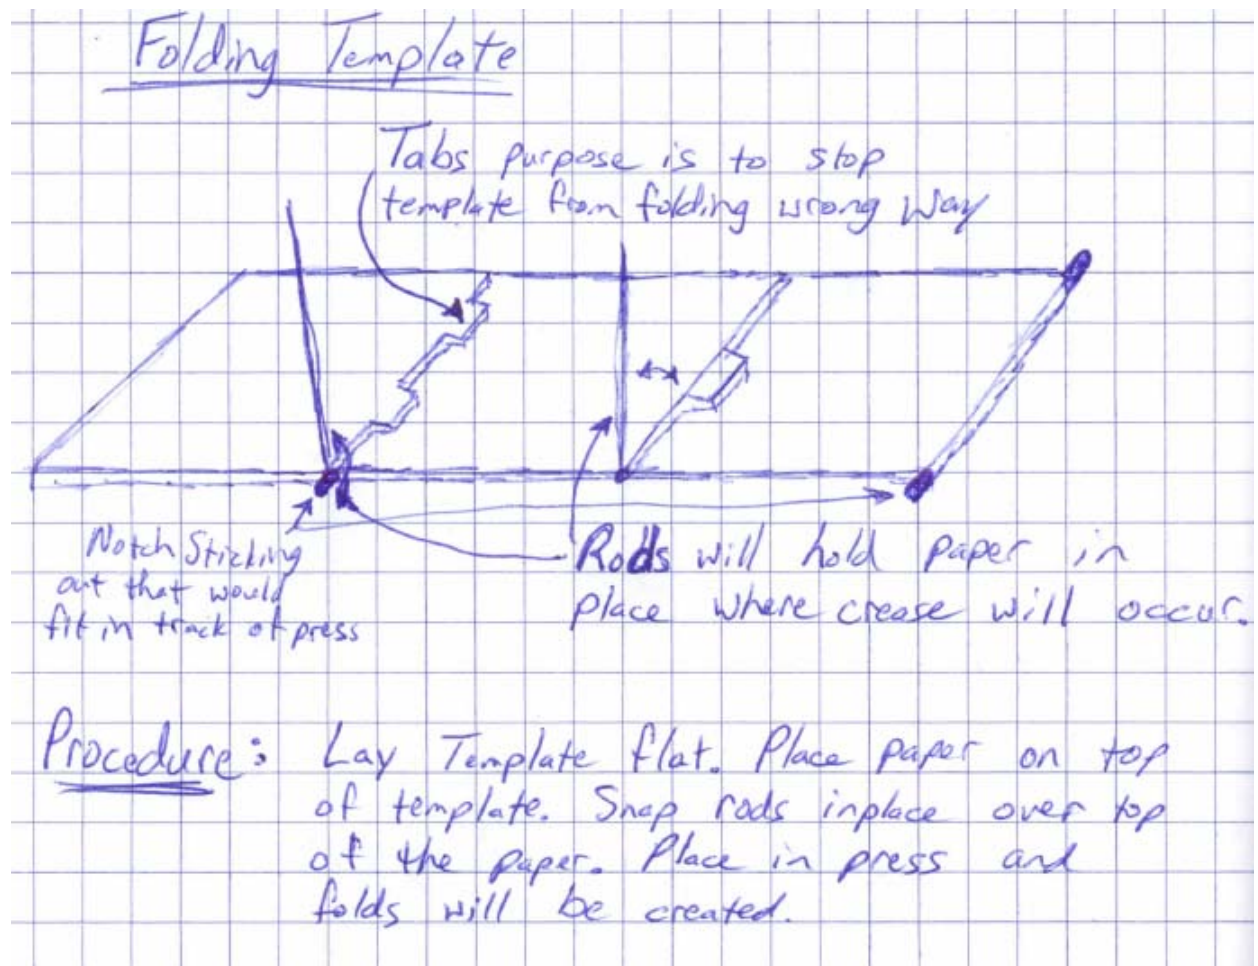 Folding Template
Tabs purpose is to stop
template from folding wrong way
Notch Sticking
out that would
fit in track of press
Rods will hold paper in
place where crease will occur.
Procedure: Lay Template flat. Place paper on top
of template. Snap rods inplace over top
of the paper. Place in press and
folds will be created.